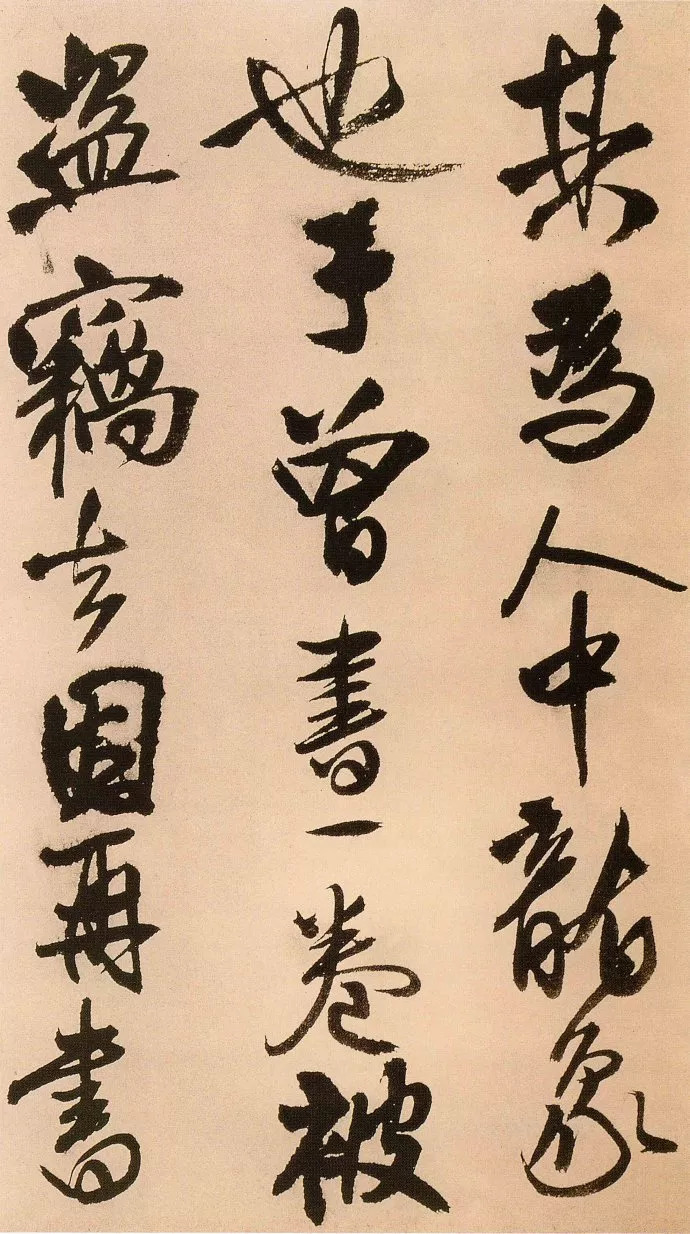 某为人中龍象
也予曾書一卷被
盗竊去因再書